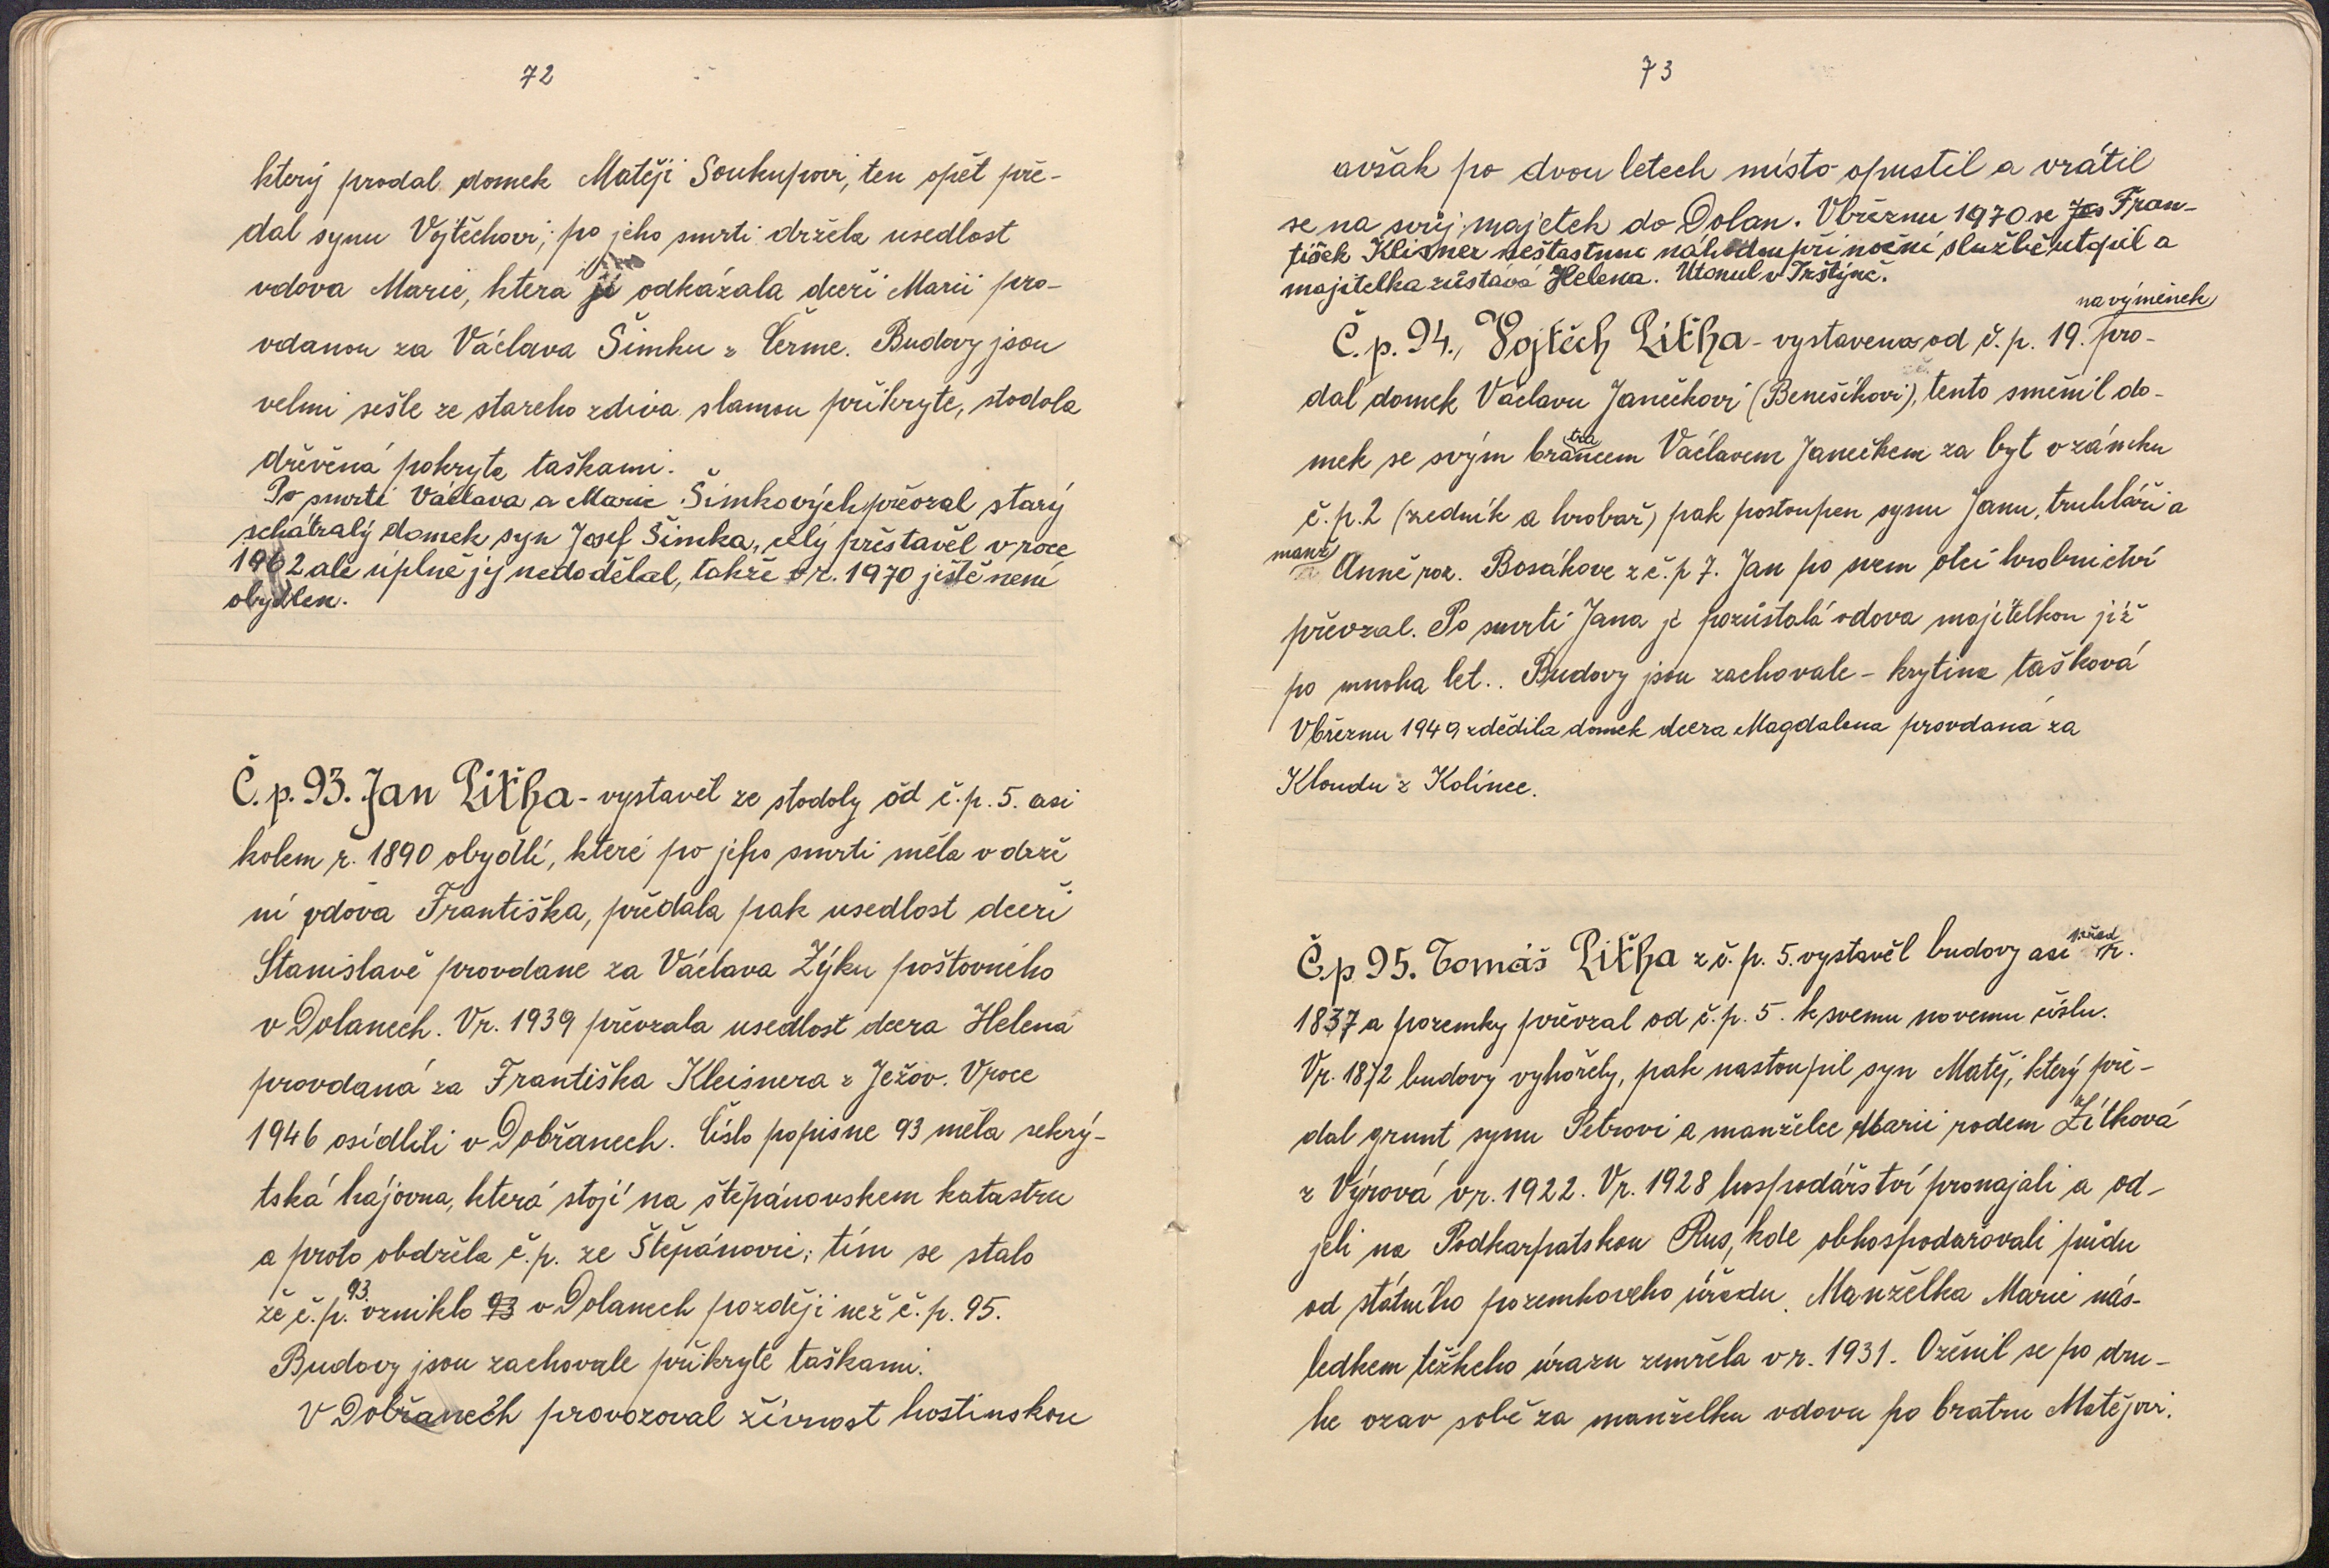 72
který prodal domek Matěji Soukupovi, ten opět pře-
dal synu Vojtěchovi; po jeho smrti držela usedlost
vdova Marie, která ji odkázala dceři Marii pro-
vdanou za Václava Šimku z Čerme. Budovy jsou
velmi sešle ze stareho zdiva slamou přikryte, stodola
dřevěná pokryta taškami.
Po smrti Václava a Marie Šimkových převzal starý
schátralý domek syn Josef Šimka, celý přestavěl v roce
1962 ale úplně jej nedodělal, takže v r. 1970 ještě není
obydlen.
Č. p. 93. Jan Liťha - vystavěl ze stodoly od č. p. 5. asi
kolem r. 1890 obydlí, které po jeho smrti měla v drže
ní vdova Františka, předala pak usedlost dceři
Stanislavě provdane za Václava Zýku poštovního
v Dolanech. V r. 1939 převzala usedlost dcera Helena
provdaná za Františka Kleisnera z Ježov. V roce
1946 osídlili v Dobřanech. Číslo popisne 93 měla sekrý-
tská hájovna, která stojí na štěpánovskem katastru
a proto obdržela č. p. ze Štěpánovic; tím se stalo
že č. p. 93. vzniklo 93 v Dolanech později než č. p. 95.
Budovy jsou zachovale přikryté taškami.
V Dobřanech provozoval živnost hostinskou
73
avšak po dvou letech místo opustil a vrátil
se na svůj majetek do Dolan. V březnu 1970 se Jos Fran-
tišek Klisner nešťastnou náhodou při noční službě utopil a
majitelka zůstává Helena. Utonul v Trštýně.
na výměnek
Č. p. 94., Vojtěch Liťha - vystavena od č. p. 19. pro-
dal domek Václavu Janečkovi (Benešíkovi), tento směnil do-
mek se svým bratrancem Václavem Janečkem za byt v zámku
č. p. 2 (zedník a hrobař) pak postoupen synu Janu, truhláři a
manž Anně roz. Bosákove z č. p 7. Jan po svem otci hrobnictví
převzal. Po smrti Jana je pozůstalá vdova majitelkou již
po mnoha let.. Budovy jsou zachovale - krytina tašková
V březnu 1949 zdědila domek dcera Magdalena provdaná za
Kloudu z Kolince.
Č. p 95. Tomáš Liťha z č. p. 5. vystavěl budovy asi před r.
1837 a pozemky převzal od č. p. 5. k svemu novemu číslu.
V r. 1872 budovy vyhořely, pak nastoupil syn Matěj, který pře-
dal grunt synu Petrovi a manželce Marii rodem Žítková
z Výrová v r. 1922. V r. 1928 hospodářství pronajali a od-
jeli na Podkarpatskou Rus, kde obhospodařovali půdu
od státního pozemkoveho úřadu. Manželka Marie nás-
ledkem těžkeho úrazu zemřela v r. 1931. Oženil se po dru-
he vzav sobě za manželku vdovu po bratru Matějovi.